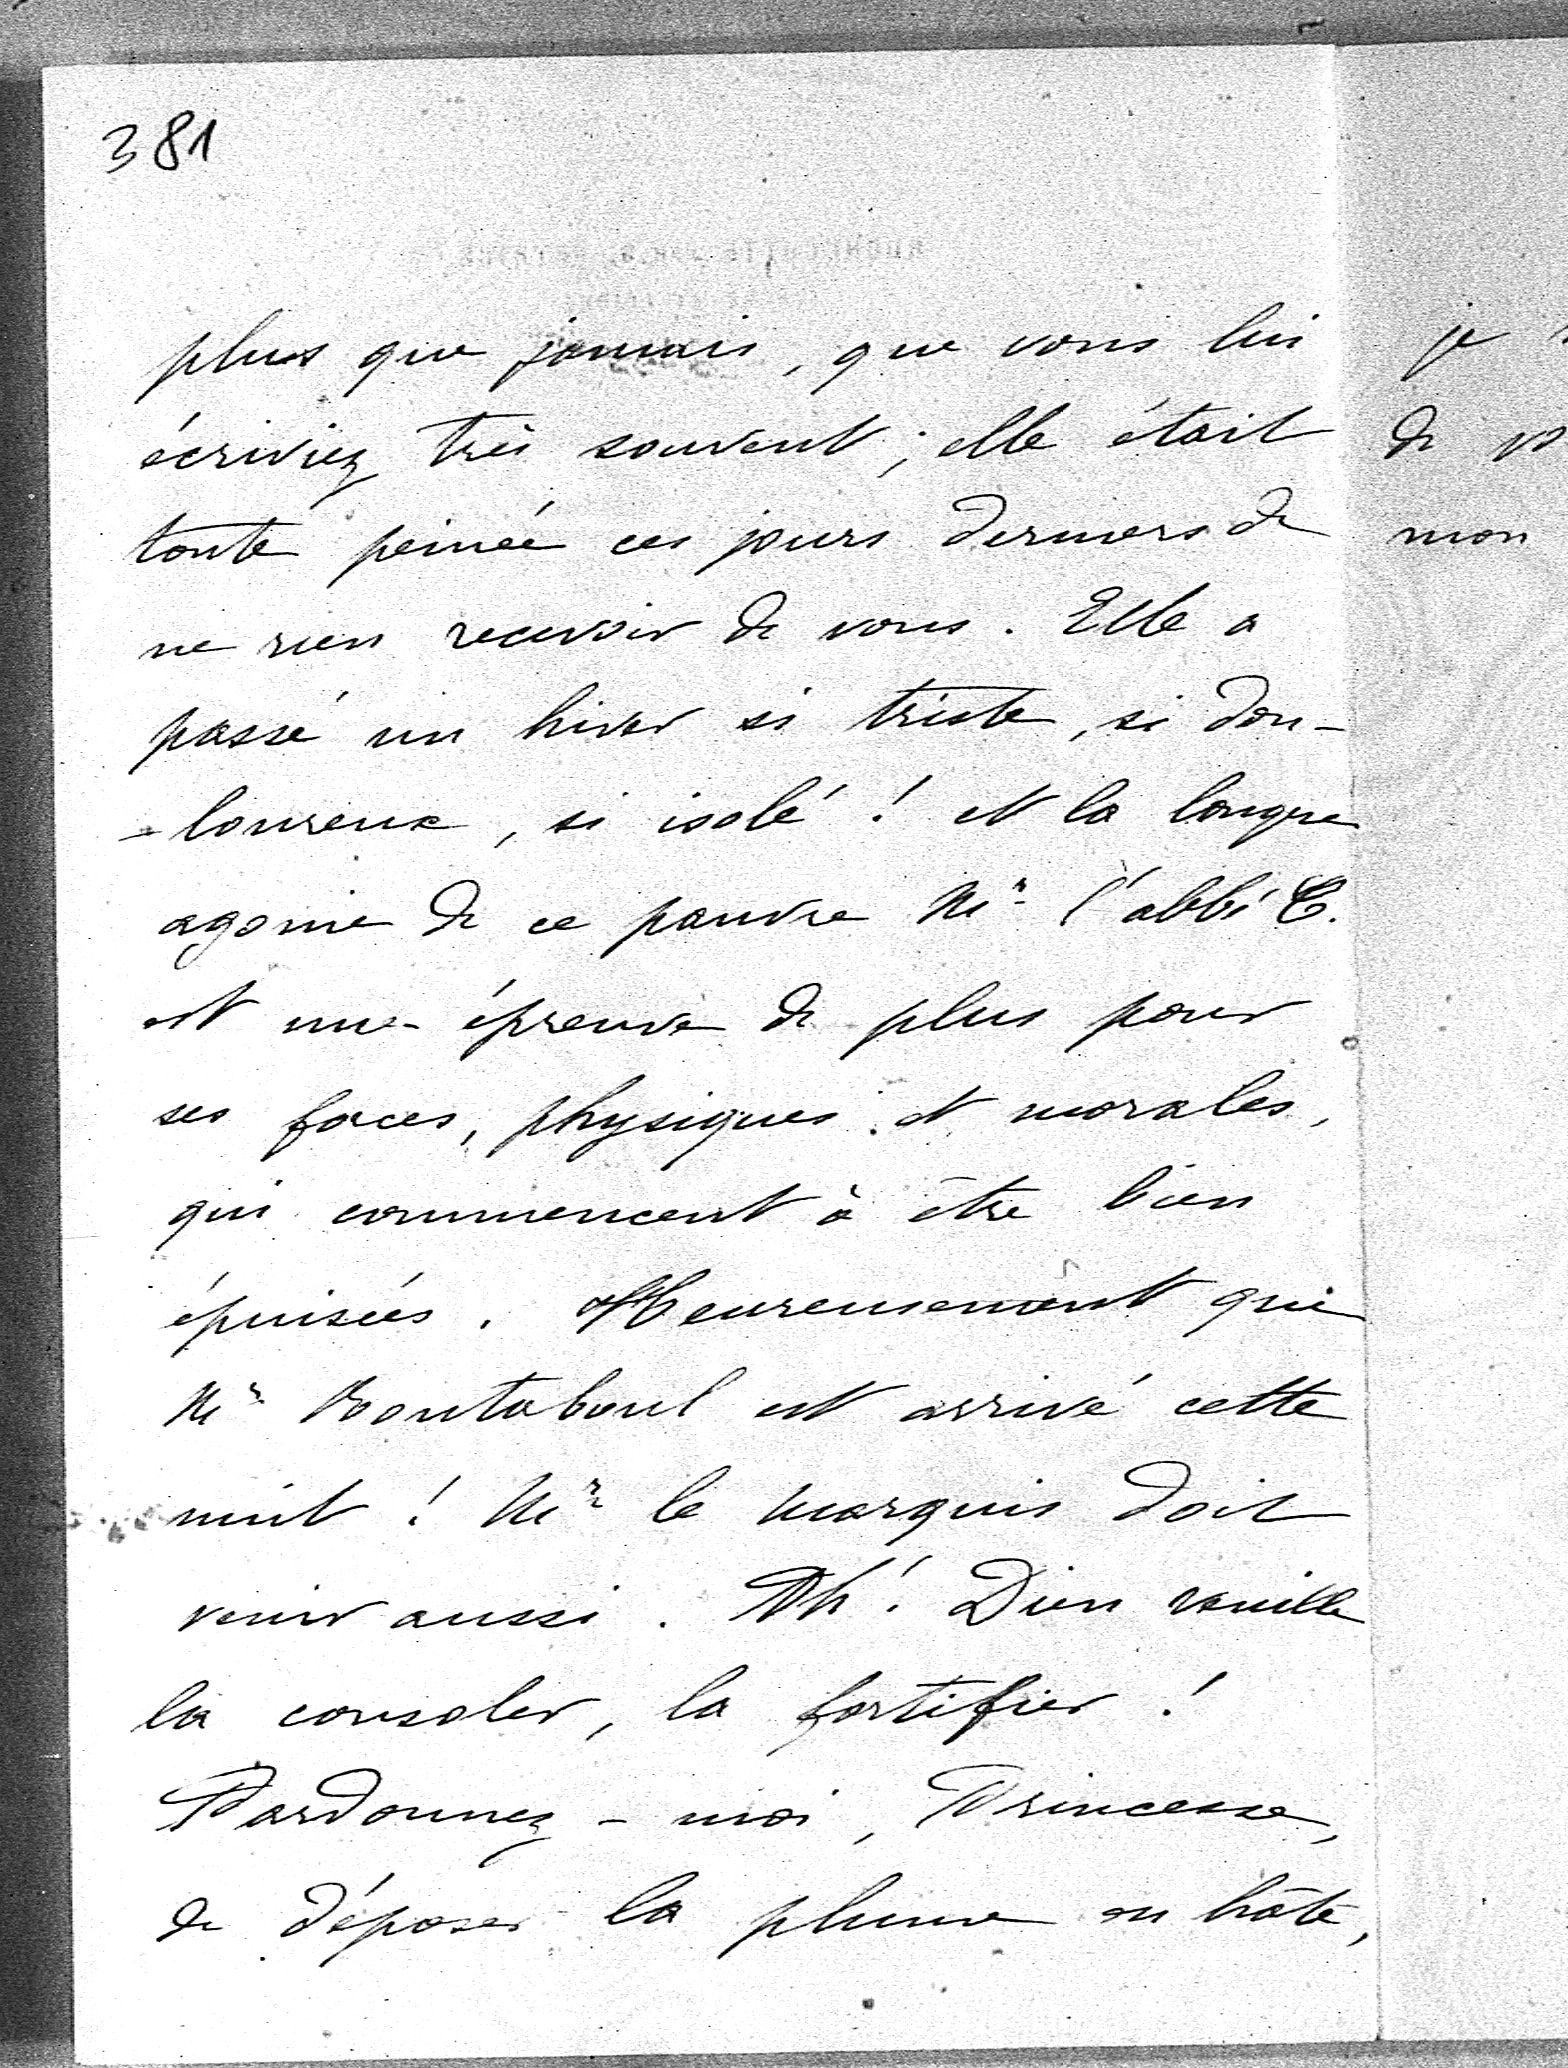 381
plus que jamais, que vous lui
écriviez très souvent ; elle était
toute peinée ces jours derniers de
ne rien recevoir de vous. Elle a
passé un hiver si triste, si dou-
-loureux, si isolé ! et la longue
agonie de ce pauvre Mr l'abbé C.
est une épreuve de plus pour
ses forces, physiques et morales,
qui commencent à être bien
épuisées. Heureusement que
Mr Boutaboul est arrivé cette
nuit ! Mr le Marquis doit
venir aussi. Ah ! Dieu veuille
la consoler, la fortifier !
Pardonnez-moi, Princesse,
de déposer la plume en hâte,
je
de
mon